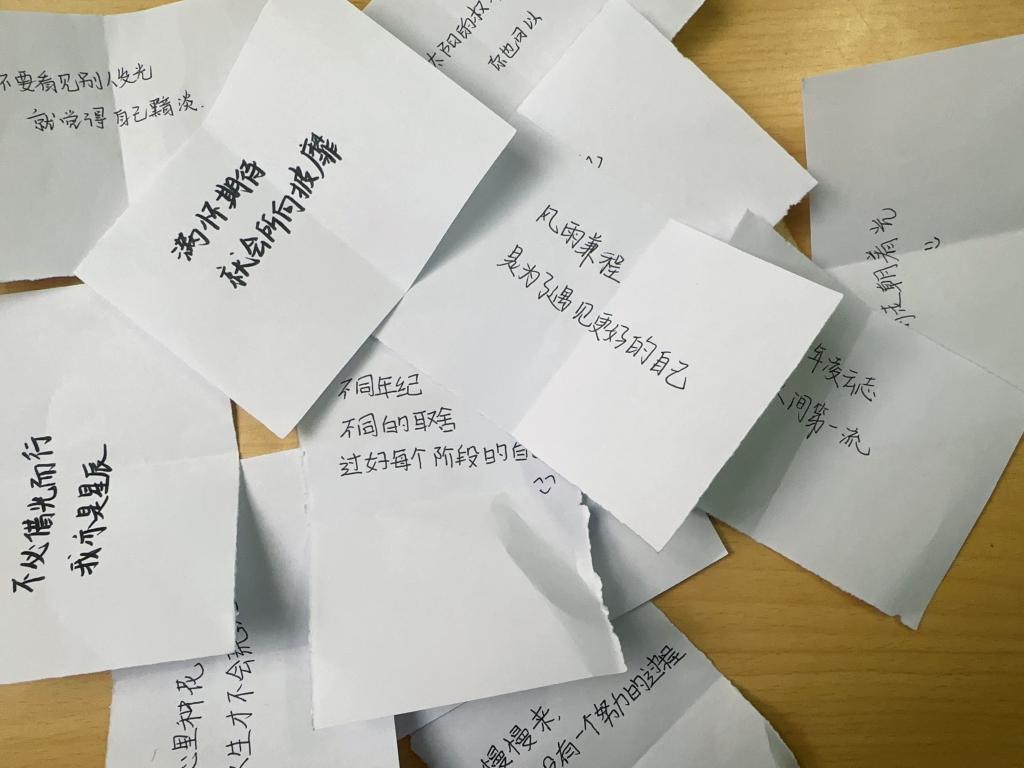 不要看见别人发光
就觉得自己黯淡.
满怀期待
就会所向披靡
太阳的权
你也可以
风雨兼程
是为了遇见更好的自己
朝春光
年凌云志
人间第一流
不同年纪
不同的取舍
过好每个阶段的自
不必借光而行
我亦是星辰
心里种花
人生才不会荒
慢慢来,
没有一个努力的过程